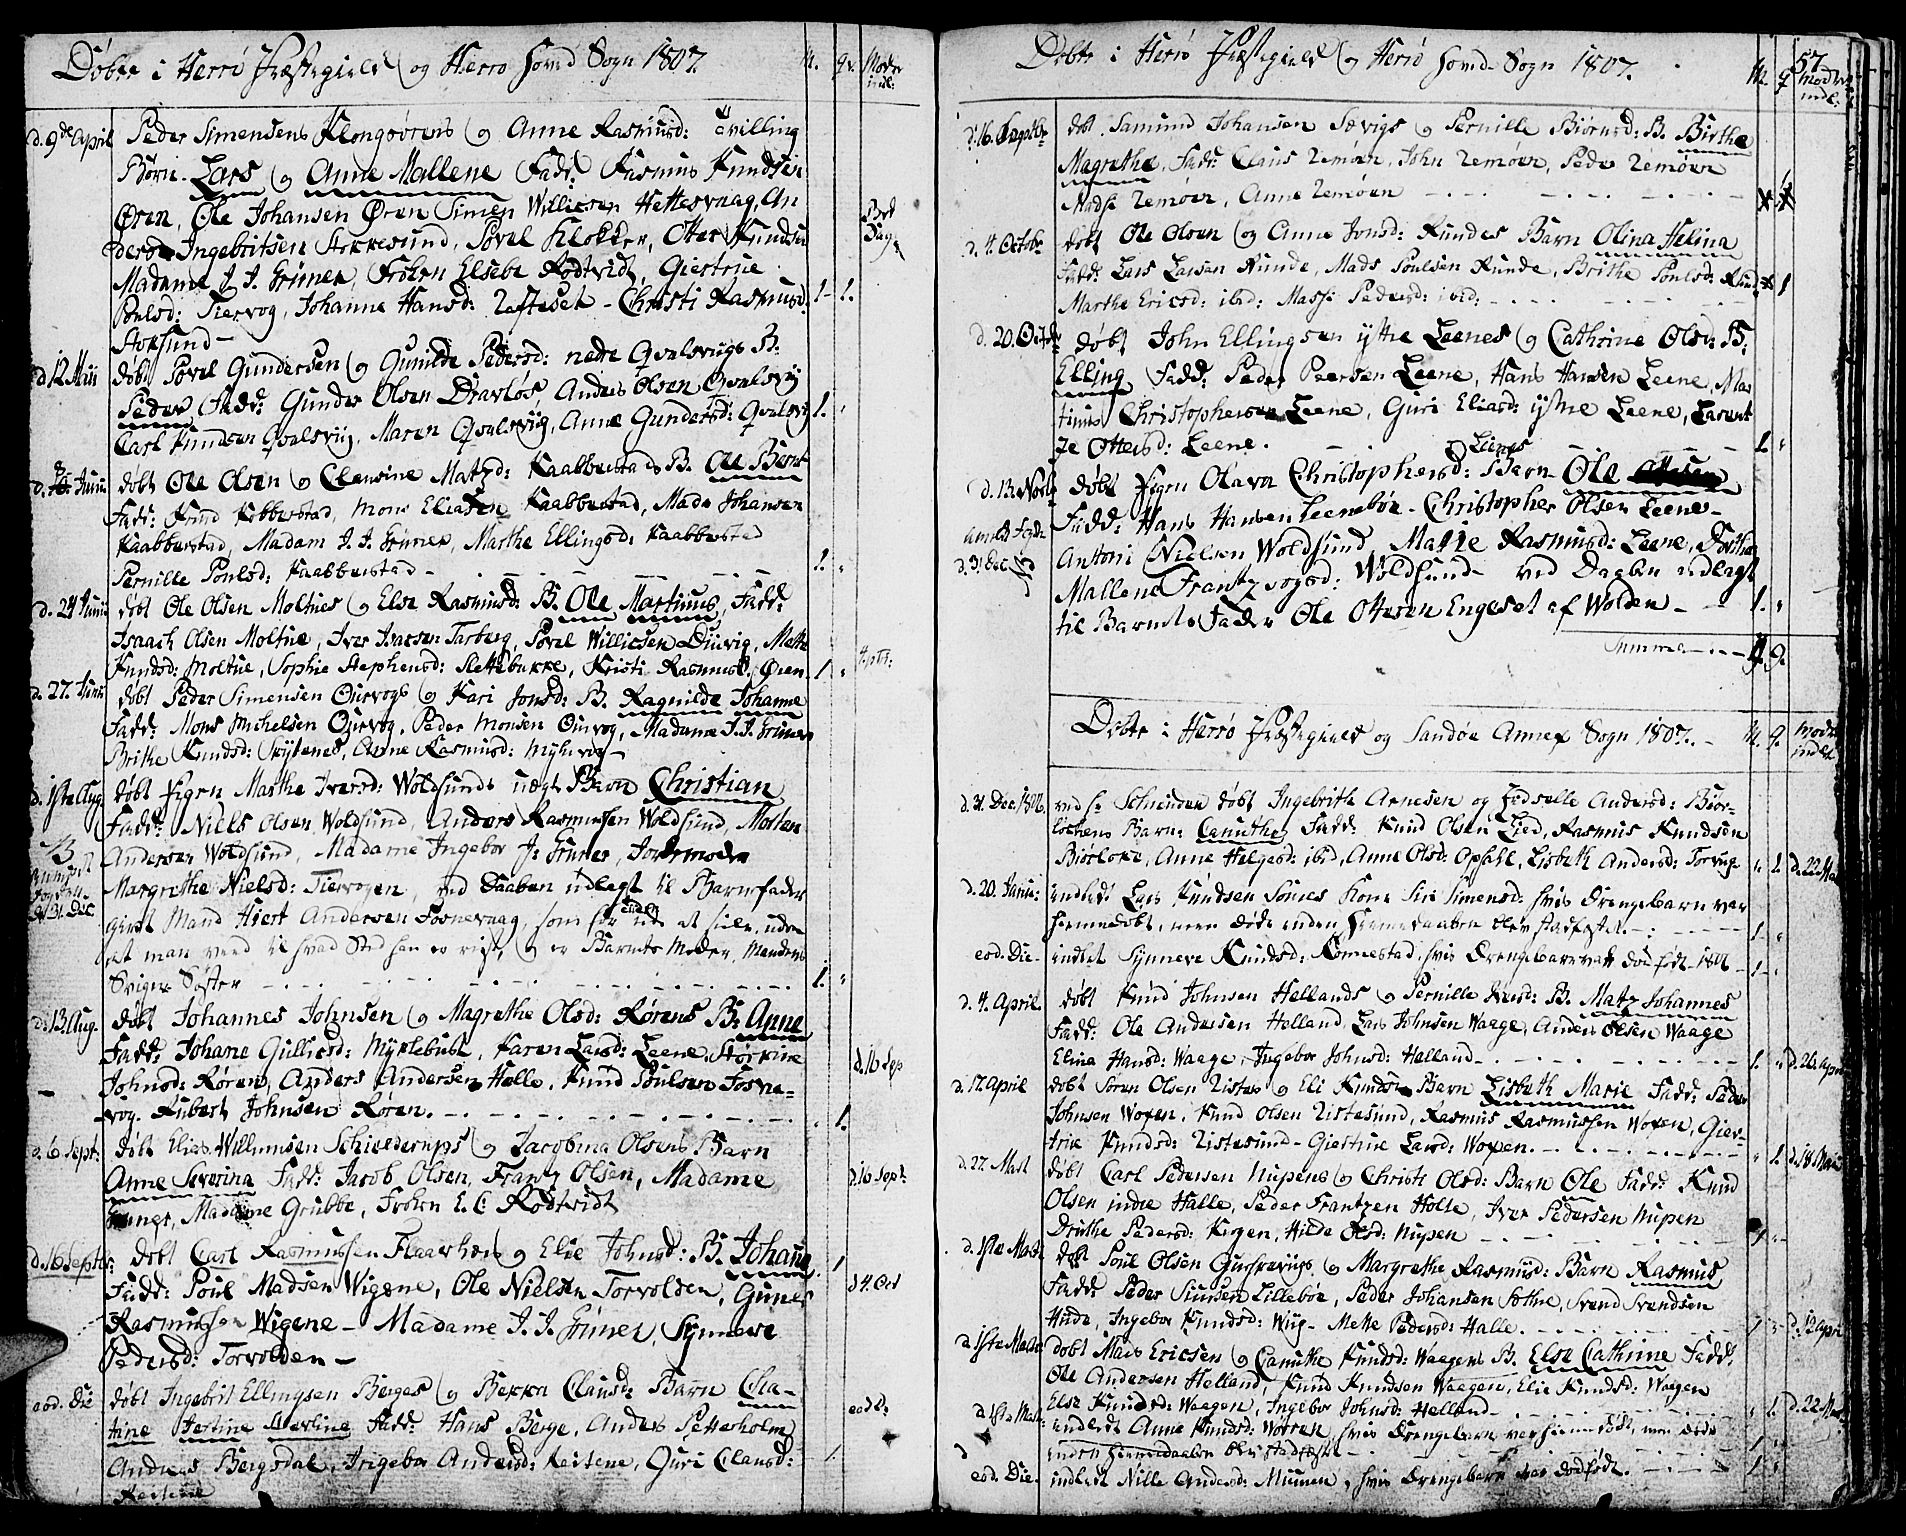 Døbte i Herrö Præstegield og Herrö Hoved Sogn 1807. M. Qv. Moder indl:
d. 9de April Peder Simensens Klongsörens og Anne Rasmusd: Tvilling
Børn. Lars og Anne Mallene Fadd: Rasmus Knudsen
Øren, Ole Johansen Øren Simen Willicsen Hettesvaag, An
ders Ingebritsen Storresund, Povel Klokker, Otter Knudsen
Madame J. J. Grüner, Frøken Elsebe Rodtvidt, Giertrue
Poulsd: Tiervog, Johanne Hansd: Leteset - Christi Rasmusd: 1. 1.
Stoksund -
d 12 Maii døbt Povel Gundersen og Gunilde Pedersd: nedre Qvalsvigs B:
Peder, Fadd: Gunder Olsen Dravløs, Anders Olsen Qvalsvig
Carl Knudsen Qvalsviig, Maren Qvalsviig, Anne Gundersd: Qvalsvig 1.
Junii døbt Ole Olsen og Clensine Matzd: Kaabbestads B. Ole Bernt
Fadd: Knud Kobbestad, Mons Eliasen Kaabbestad, Mads Johansen
Kaabbestad, Madam J. J. Grüner, Marthe Ellingsd: Kaabbestad
Pernille Poulsd: Kaabbestad - 1.
d. 24 Junii døbt Ole Olsen Moltues og Else Rasmusd: B. Ole Martinus, Fadd:
Isaach Olsen Moltue, Iver Ivarsen Tarberg, Povel Willicsen Diivig, Mette
Knudsd: Moltue, Sophie Stephensd: Slettebakke, Kristi Rasmusd: Øien 1.
d. 27. Junii døbt Peder Simensen Ourvogs og Kari Jonsd: B. Ragnilde Johanne
Fadd: Mons Michelsen Ourvog, Peder Monsen Ourvog, Madame J. J. Grüner
Brithe Knudsd: Skytenes, Anne Rasmusd: Myhrvog -
d. 1ste Aug døbt Pigen Marthe Iversd: Woldsunds uægte Barn Christian
Fadd: Niels Olsen Woldsund, Anders Rasmussen Woldsund, Morten
Andersen Woldsund, Madame Ingebor J: Grüner, Jordemoder
d 31. Dec Margrethe Nielsd: Tiervogen, ved Daaben udlagt til Barnefader
givt Mand Hiert Andersen Fosnevaag, som før ude at seile, uden
at man veed til hvad Sted han er reist, og er Barnets Moder, Mandens
Svigers Søster 1.
d. 13. Aug. døbt Johannes Johnsen og Magrethe Olsd: Rørens B: Anne
Fadd: Johane Gulliksd: Myklebust, Karen Larsd: Leene, Størkine
Johnsd: Røren, Anders Andersen Halle, Knud Poulsen Fosne- d. 16 Sep
vog. Rubert Johnsen Røren. 1.
d. 6. Sept. døbt Elias Willumsen Schielderups og Jacobina Olsens Barn
Anne Severina Fadd: Jacob Olsen, Frantz Olsen, Madame d. 16 Sept:
Grüner, Madame Grubbe, Frøkn E. C. Rodtvidt
d. 16 Septbr: døbt Carl Rasmussen Flaaehans og Elie Johnsd: B. Johane 1
Fadd: Poul Madsen Wigene, Ole Nielsen Torvolden, Guner d 4. Oct
Rasmussen Wigene - Madame J. J. Grüner, Synnøve
Pedersd: Torvolden -
eod. Die døbt Ingebrit Ellingsen Berges og Bekka Clausd: Barn Cha- eod D:
tine Jertine Severine Fadd: Hans Berge, Anders Setterholm
Andreas Bergsdal, Ingebor Andersd: Reitene, Guri Clausd: 1.
Reitene
Døbte i Herrö Præstegield og Herrö Hoved Sogn 1807. M. q 57 Moder indl:
d. 16. Septbr døbt Samund Johansen Sævigs og Pernille Biørnsd: B. Birthe
Magrethe, Fadd: Claus Remøen, John Remøen, Peder Remøen
Madsi Remøen, Anne Remøen - 1
d. 4. Octobr døbt Ole Olsen og Anne Jonsd: Rundes Barn Olina Helina
Fadd: Lars Larsen Runde, Mads Poulsen Runde, Brithe Poulsd: Runde 1
Marthe Ericsd: ibd: Massi Pedersd: ibid:
d. 20. Octbr døbt John Ellingsen ytre Leenes og Cathrine Olsd: B.
Elling Fadd: Peder Peersen Leene, Hans Hansen Leene, Mar
tinus Christophersen Leene, Guri Eliasd: ystre Leene, Larent
ze Ottersd: Leene. 1.
d. 13. Novbr døbt Pigen Olava Christophersd: Leenes Barn Ole
Fadd: Hans Hansen Leenebøe - Christopher Olsen Leene -
d. 31 Dec Antoni Nielsen Woldsund Massie Rasmusd: Leene, Dorthe
Mallene Frantzvogsd: Woldsund - ved Daaben udlagt
til Barnets Fader Ole Ottersen Engeset af Wolden - 1.
Summa - 9. 9.
Døbte i Herrö Præstegield og Sandöe Annex Sogn 1807. - M. q. Moder indl:
d. 31. Dec. 1806 ved Hr Schneider døbt Ingebrith Arnesen og Zidselle Andersd: Biør-
lochens Barn: Canuthe Fadd: Knud Olsen Lied, Rasmus Knudsen
Biørloke, Anne Helgesd: ibid, Anne Olsd: Opsahl, Lisbeth Andersd: Torvig 1. d. 22 Mar
d. 20. Janua: indledt Lars Knudsen Sønnes Kone Siri Simensd: hvis Drengebarn var
hiemmedøbt, men døde inden Hiemmedaaben blev stadfæstet. 1
eod. Die - indlet Synneve Knudsd: Rønnestad, hvis Drengebarn var dødfødt 1806 1
d. 4. April døbt Knud Johnsen Hellands og Pernille Iversd: B. Matz Johannes
Fadd: Ole Andersen Helland, Lars Johnsen Waage, Anders Olsen Waage
Eline Hansd: Waage, Ingebor Johnsd: Helland - 1. d. 26. April
d. 12 April døbt Søren Olsen Ristes og Eli Knudsd: Barn Lisbeth Marie Fadd: Peder
Johnsen Woxen, Knud Olsen Ristesund, Rasmus Rasmussen Woxen, Gier-
true Knudsd: Ristesund - Giertrue Larsd: Woxen. 1. d. 18 Maii
d. 27 Mart døbt Carl Pedersen Nupens og Christi Olsd: Barn Ole Fadd: Knud
Olsen indre Halle, Peder Frantzen Holte, Iver Pedersen Nupen
Drithe Pedersd: Krogen, Hilde Olsd: Nupen - 1
d. 1ste Marts døbt Poul Olsen Gursrevigs og Margrethe Rasmusd: Barn Rasmus
Fadd: Peder Siursen Lillebøe, Peder Johansen Sothne, Svend Svendsen
Huda, Ingebor Knudsd: Wiig - Mette Pedersd: Halle. 1 d. 12 April
d 1ste Martii døbt Mads Ericsen og Canuthe Knudsd: Waagens B. Else Cathrine Fadd:
Ole Andersen Helland, Knud Knudsen Waagen, Elie Knudsd: Waagen
Else Knudsd: Waagen, Ingebor Johnsd: Helland - 1. d. 22. Mar
d 1ste Mart: indledt Anne Knudsd: Worren, hvis Drengebarn var hiemmedøbt, men døde
inden Hiemmedaaben blev stadfæstet - 1
eod. Die. indledt Nille Andersd: Muenen, hvis Drengebarn var dødfødt. 1